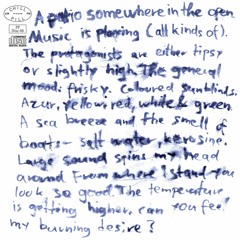 CHILL PILL
A patio somewhere in the open
Music is playing (all kinds of).
The protagonists are either tipsy
or slightly high. The general
mood: frisky. Coloured sunblinds.
Azur, yellow, red, white & green.
A sea breeze and the smell of
boats – salt water, kerosine.
Large sound spins my head
around. From where I stand you
look so good. The temperature
is getting higher. Can you feel
my burning desire?